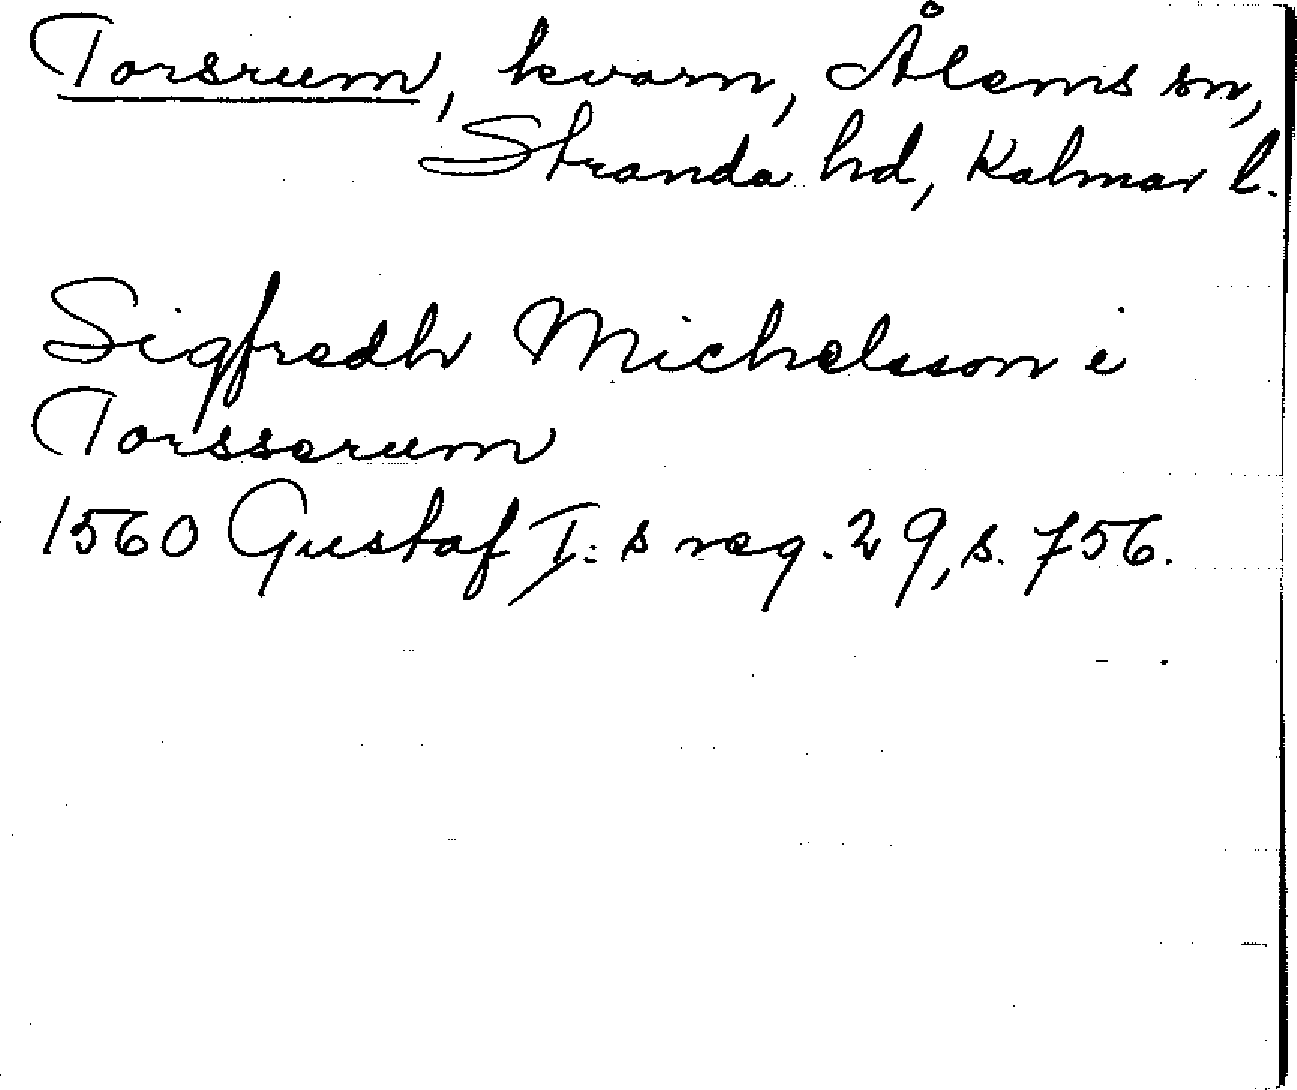 Torsrum, kvarn, Ålems sn,
Stranda hd, Kalmar l.
Sigfredh Michelsson i
Torsserum
1560 Gustaf I:s reg. 29, s. 756.